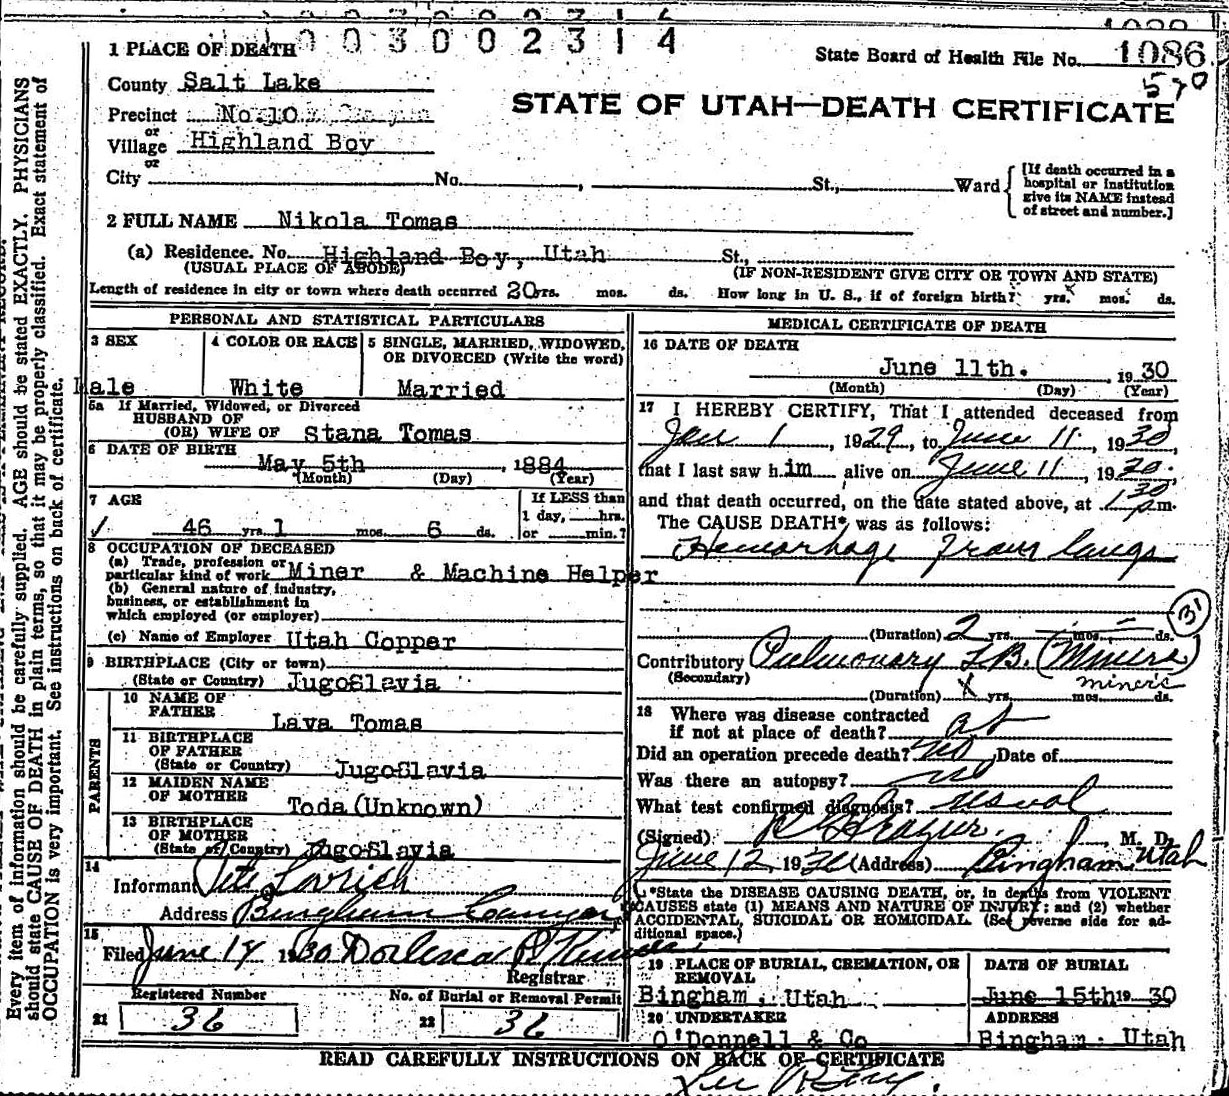 1 PLACE OF DEATH 003002314
State Board of Health File No. 1086
570
County Salt Lake
STATE OF UTAH—DEATH CERTIFICATE
Precinct No. 10
or
Village Highland Boy
or
City No. , St., Ward
[If death occurred in a hospital or institution give its NAME instead of street and number.]
2 FULL NAME Nikola Tomas
(a) Residence. No. Highland Boy, Utah St.,
(USUAL PLACE OF ABODE) (IF NON-RESIDENT GIVE CITY OR TOWN AND STATE)
Length of residence in city or town where death occurred 20 yrs. mos. ds. How long in U. S., if of foreign birth? yrs. mos. ds.
PERSONAL AND STATISTICAL PARTICULARS
3 SEX 4 COLOR OR RACE 5 SINGLE, MARRIED, WIDOWED, OR DIVORCED (Write the word)
Male White Married
5a If Married, Widowed, or Divorced
HUSBAND OF
(OR) WIFE OF Stana Tomas
6 DATE OF BIRTH
May 5th , 1884
(Month) (Day) (Year)
7 AGE If LESS than
1 day, hrs.
46 yrs. 1 mos. 6 ds. or min.?
8 OCCUPATION OF DECEASED
(a) Trade, profession or
particular kind of work Miner & Machine Helper
(b) General nature of industry,
business, or establishment in
which employed (or employer)
(c) Name of Employer Utah Copper
9 BIRTHPLACE (City or town)
(State or Country) JugoSlavia
PARENTS
10 NAME OF
FATHER Lava Tomas
11 BIRTHPLACE
OF FATHER
(State or Country) JugoSlavia
12 MAIDEN NAME
OF MOTHER Toda (Unknown)
13 BIRTHPLACE
OF MOTHER
(State or Country) JugoSlavia
14
Informant Pete Lovrich
Address Bingham Canyon
15
Filed June 14 1930
Registrar
Registered Number No. of Burial or Removal Permit
21 36 22 36
MEDICAL CERTIFICATE OF DEATH
16 DATE OF DEATH
June 11th. , 1930
(Month) (Day) (Year)
17 I HEREBY CERTIFY, That I attended deceased from
Jan 1 , 1929, to June 11, 1930
that I last saw him alive on June 11, 1930.
and that death occurred, on the date stated above, at 1 30 p.m.
The CAUSE DEATH* was as follows:
Hemorhage from lungs
31
(Duration) 2 yrs. mos. ds.
Contributory Pulmonary T.B. (Miners)
(Secondary) miner's
(Duration) x yrs. mos. ds.
18 Where was disease contracted
if not at place of death? at
Did an operation precede death? no Date of
Was there an autopsy? no
What test confirmed diagnosis? usual
(Signed) Frazier. M. D.
June 12, 1930 (Address) Bingham Utah
*State the DISEASE CAUSING DEATH, or, in deaths from VIOLENT
CAUSES state (1) MEANS AND NATURE OF INJURY; and (2) whether
ACCIDENTAL, SUICIDAL OR HOMICIDAL. (See reverse side for additional space.)
19 PLACE OF BURIAL, CREMATION, OR REMOVAL DATE OF BURIAL
Bingham, Utah June 15th 1930
20 UNDERTAKER ADDRESS
O'Donnell & Co Bingham. Utah
READ CAREFULLY INSTRUCTIONS ON BACK OF CERTIFICATE
Every item of information should be carefully supplied. AGE should be stated EXACTLY. PHYSICIANS
should state CAUSE OF DEATH in plain terms, so that it may be properly classified. Exact statement of
OCCUPATION is very important. See instructions on back of certificate.